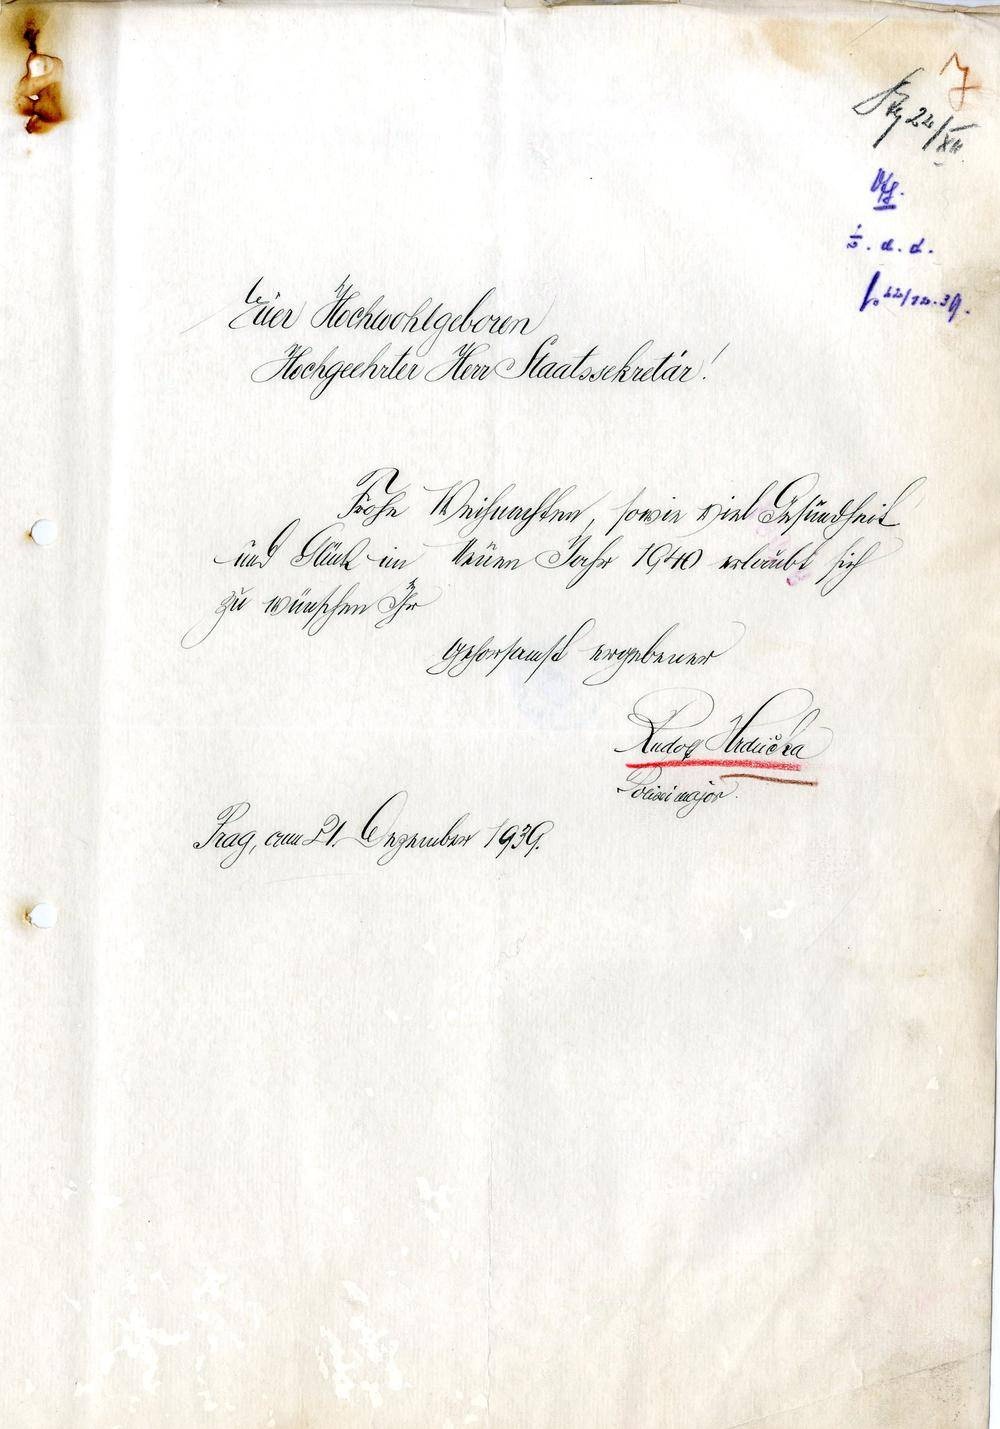 7
22/XII
Vfg.
z. d. d.
22/12.39.
Euer Hochwohlgeboren
Hochgeehrter Herr Staatssekretär!
Frohe Weihnachten, sowie viel Gesundheit
und Glück im Neuen Jahr 1940 erlaubt sich
zu wünschen Ihr
gehorsamst ergebener
Rudolf Hrdučka
Polizeimajor.
Prag, am 21. Dezember 1939.